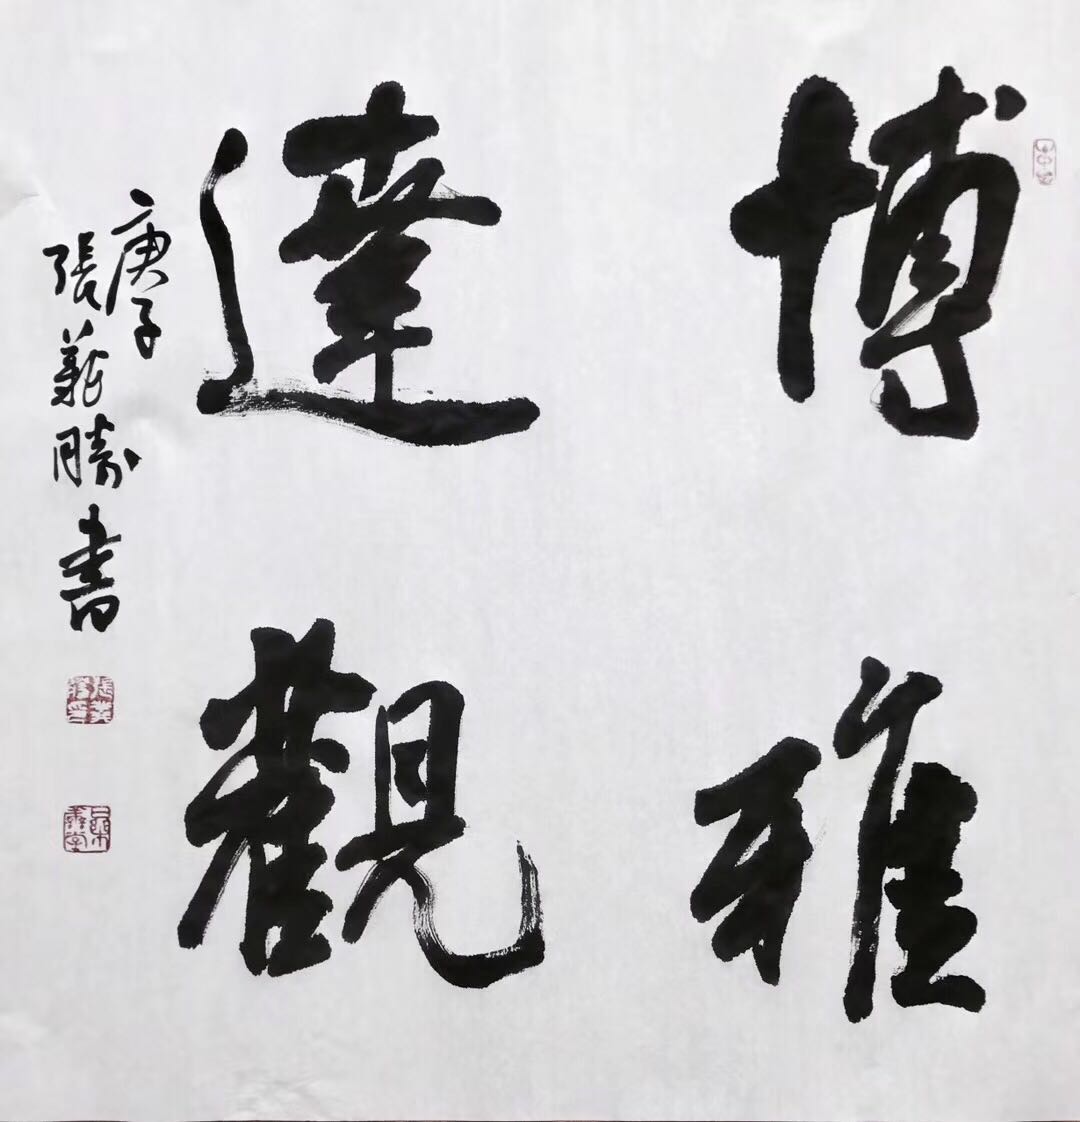 博雅
達觀
庚子
張 勝書